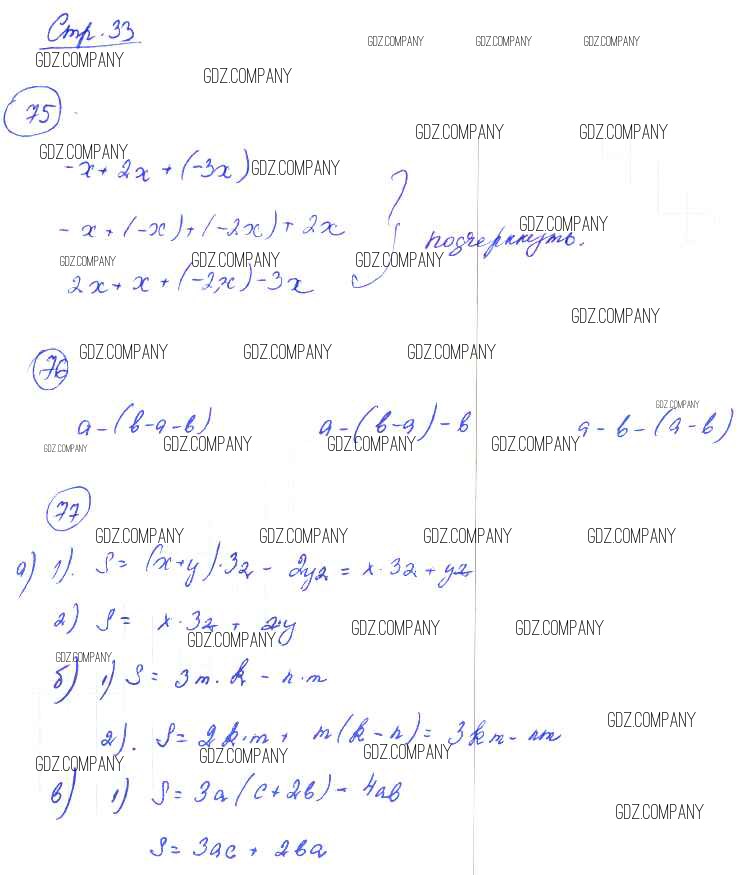 Стр. 33
GDZ.COMPANY GDZ.COMPANY GDZ.COMPANY
GDZ.COMPANY
GDZ.COMPANY
75
GDZ.COMPANY GDZ.COMPANY
GDZ.COMPANY
-x + 2x + (-3x) GDZ.COMPANY
-x + (-x) + (-2x) + 2x
GDZ.COMPANY
подчеркнуть.
GDZ.COMPANY GDZ.COMPANY GDZ.COMPANY
2x + x + (-2x) - 3x
GDZ.COMPANY
76
GDZ.COMPANY GDZ.COMPANY GDZ.COMPANY
GDZ.COMPANY
a - (в - a - в) a - (в - a) - в a - в - (a - в)
GDZ.COMPANY GDZ.COMPANY GDZ.COMPANY GDZ.COMPANY
77
GDZ.COMPANY GDZ.COMPANY GDZ.COMPANY GDZ.COMPANY
а) 1). S = (x+y)·3z - 2yz = x·3z + yz
2) S = x·3z + zy
GDZ.COMPANY GDZ.COMPANY GDZ.COMPANY
GDZ.COMPANY
б) 1) S = 3m·k - n·m
GDZ.COMPANY
2). S = 2k·m + m(k-n) = 3km - nm
GDZ.COMPANY GDZ.COMPANY GDZ.COMPANY
в) 1) S = 3a(c+2в) - 4aв
GDZ.COMPANY
S = 3ac + 2вa